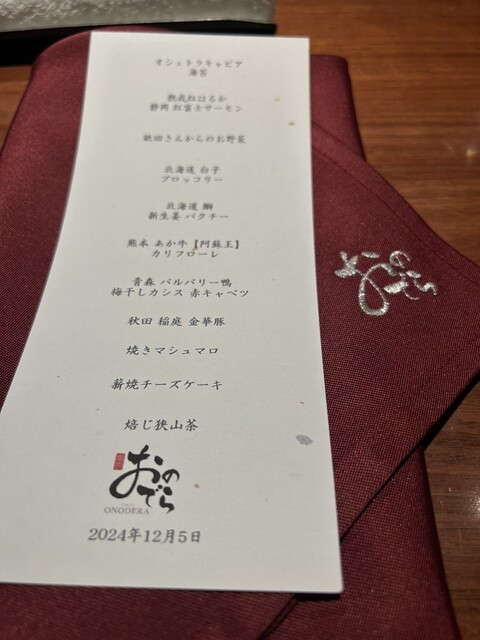 オシェトラキャビア
海苔
熟成紅はるか
静岡 紅富士サーモン
秋田さんからのお野菜
北海道 白子
ブロッコリー
北海道 鰤
新生姜 パクチー
熊本 あか牛【阿蘇王】
カリフローレ
青森 バルバリー鴨
梅干しカシス 赤キャベツ
秋田 稲庭 金華豚
焼きマシュマロ
薪焼チーズケーキ
焙じ狭山茶
おのでら
ONODERA
2024年12月5日
おのでら